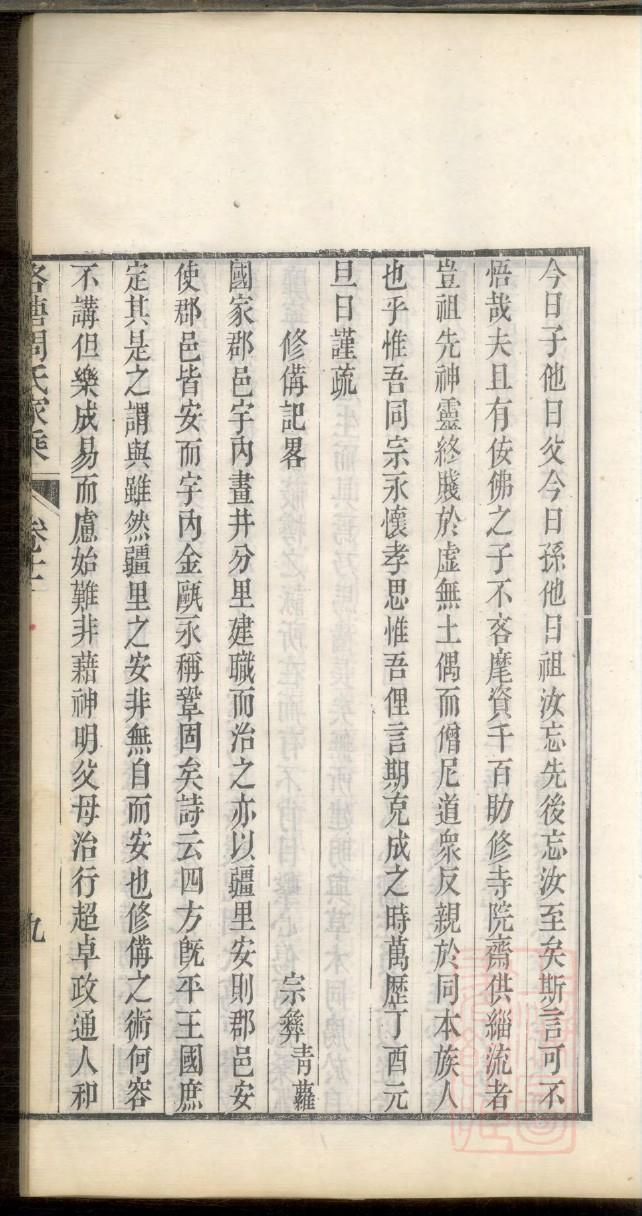 今日子他日父今日孫他日祖汝忘先後忘汝至矣斯言可不
悟哉夫且有佞佛之子不吝麾資千百助修寺院齋供緇流者
豈祖先神靈終賤於虛無土偶而僧尼道衆反親於同本族人
也乎惟吾同宗永懷孝思惟吾俚言期克成之時萬歷丁酉元
旦日謹疏
修備記畧 宗彝青蘿
國家郡邑宇內畫井分里建職而治之亦以疆里安則郡邑安
使郡邑皆安而宇內金甌永稱鞏固矣詩云四方旣平王國庶
定其是之謂與雖然疆里之安非無自而安也修備之術何容
不講但樂成易而慮始難非藉神明父母治行超卓政通人和
周氏家乘 卷十二 九